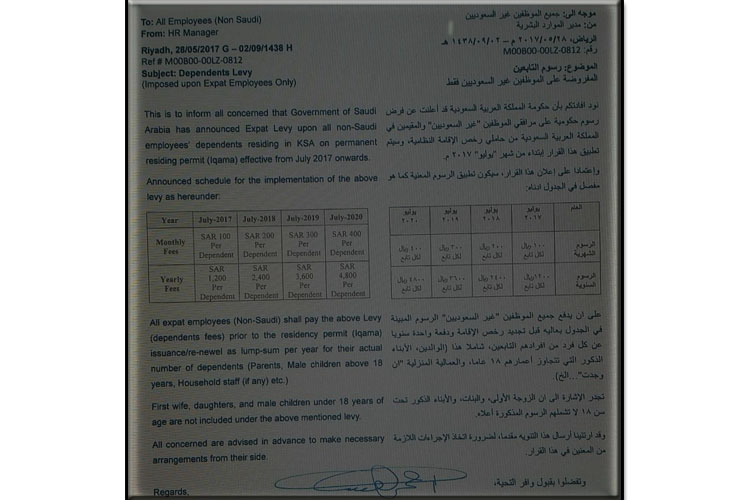 To: All Employees (Non Saudi)
From: HR Manager
Riyadh, 28/05/2017 G – 02/09/1438 H
Ref # M00B00-00LZ-0812
Subject: Dependents Levy
(Imposed upon Expat Employees Only)
This is to inform all concerned that Government of Saudi
Arabia has announced Expat Levy upon all non-Saudi
employees' dependents residing in KSA on permanent
residing permit (Iqama) effective from July 2017 onwards.
Announced schedule for the implementation of the above
levy as hereunder:
Year July-2017 July-2018 July-2019 July-2020
Monthly Fees SAR 100 Per Dependent SAR 200 Per Dependent SAR 300 Per Dependent SAR 400 Per Dependent
Yearly Fees SAR 1,200 Per Dependent SAR 2,400 Per Dependent SAR 3,600 Per Dependent SAR 4,800 Per Dependent
All expat employees (Non-Saudi) shall pay the above Levy
(dependents fees) prior to the residency permit (Iqama)
issuance/re-newel as lump-sum per year for their actual
number of dependents (Parents, Male children above 18
years, Household staff (if any) etc.)
First wife, daughters, and male children under 18 years of
age are not included under the above mentioned levy.
All concerned are advised in advance to make necessary
arrangements from their side.
Regards,
موجه الى: جميع الموظفين غير السعوديين
من: مدير الموارد البشرية
الرياض، ٢٠١٧/٠٥/٢٨ م – ١٤٣٨/٠٩/٠٢ هـ
رقم: M00B00-00LZ-0812
الموضوع: رسوم التابعين
المفروضة على الموظفين غير السعوديين فقط
نود افادتكم بأن حكومة المملكة العربية السعودية قد أعلنت عن فرض
رسوم حكومية على مرافقي الموظفين "غير السعوديين" والمقيمين في
المملكة العربية السعودية من حاملي رخص الإقامة النظامية، وسيتم
تطبيق هذا القرار إبتداء من شهر "يوليو" ٢٠١٧ م.
وإعتمادا على إعلان هذا القرار، سيكون تطبيق الرسوم المعنية كما هو
مفصل في الجدول ادناه:
العام يوليو ٢٠١٧ يوليو ٢٠١٨ يوليو ٢٠١٩ يوليو ٢٠٢٠
الرسوم الشهرية ١٠٠ ريال لكل تابع ٢٠٠ ريال لكل تابع ٣٠٠ ريال لكل تابع ٤٠٠ ريال لكل تابع
الرسوم السنوية ١٢٠٠ ريال لكل تابع ٢٤٠٠ ريال لكل تابع ٣٦٠٠ ريال لكل تابع ٤٨٠٠ ريال لكل تابع
على ان يدفع جميع الموظفين "غير السعوديين" الرسوم المبينة
في الجدول بعاليه قبل تجديد رخص الإقامة ودفعة واحدة سنويا
عن كل فرد من افرادهم التابعين، شاملا هذا (الوالدين، الأبناء
الذكور التي تتجاوز أعمارهم ١٨ عاما، والعمالية المنزلية "ان
وجدت"...الخ)
تجدر الإشارة الى ان الزوجة الأولى، والبنات، والأبناء الذكور تحت
سن ١٨ لا تشملهم الرسوم المذكورة أعلاه.
وقد ارتئينا أرسال هذا التنويه مقدما، لضرورة اتخاذ الإجراءات اللازمة
من المعنين في هذا القرار.
وتفضلوا بقبول وافر التحية،